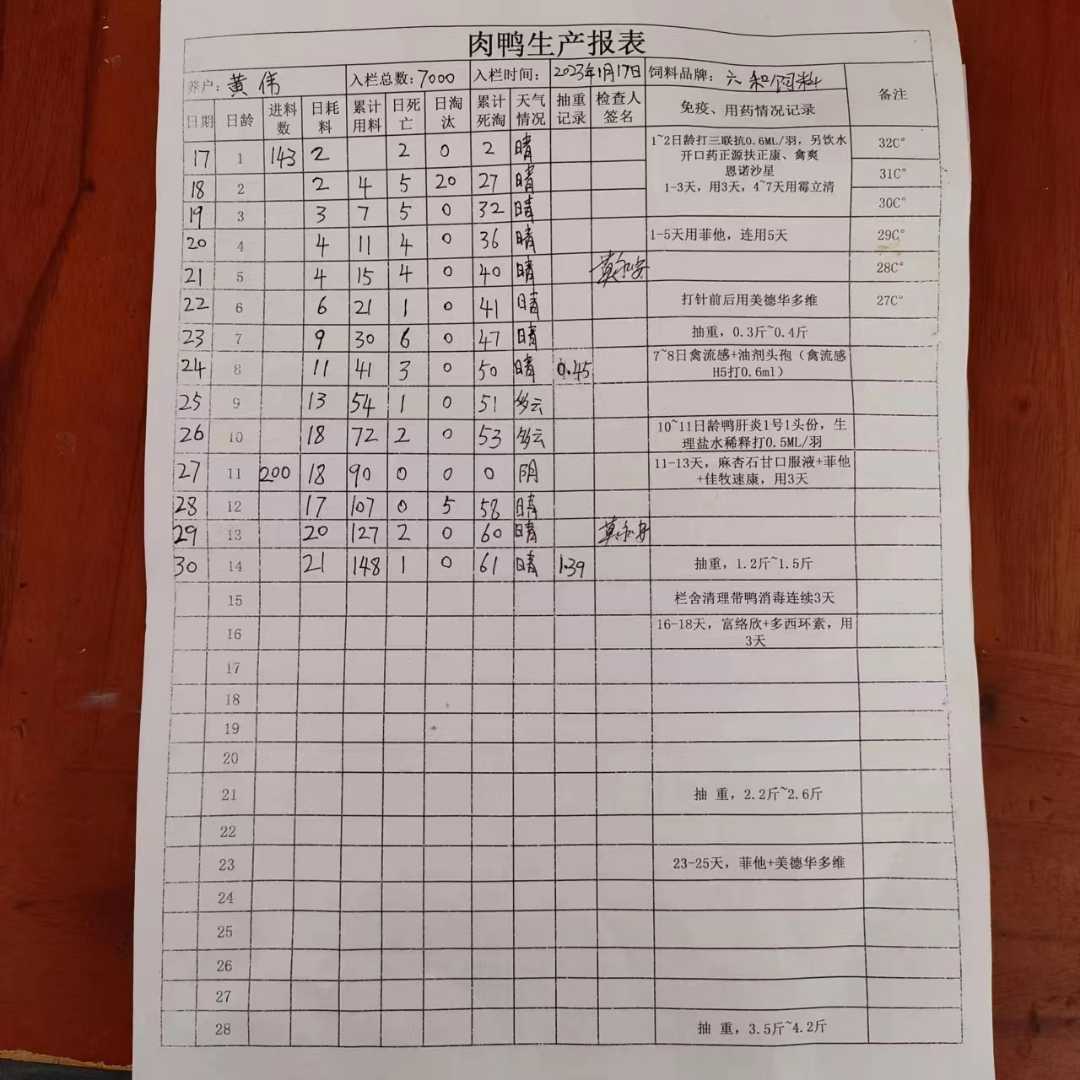 肉鸭生产报表
养户：黄伟 入栏总数：7000 入栏时间：2023年1月17日 饲料品牌：六和饲料 备注
日期 日龄 进料数 日耗料 累计用料 日死亡 日淘汰 累计死淘 天气情况 抽重记录 检查人签名 免疫、用药情况记录
17 1 143 2 2 0 2 晴 1~2日龄打三联抗0.6ML/羽，另饮水 32C°
开口药正源扶正康、禽爽
恩诺沙星
18 2 2 4 5 20 27 晴 1-3天，用3天，4~7天用霉立清 31C°
19 3 3 7 5 0 32 晴 30C°
20 4 4 11 4 0 36 晴 1-5天用菲他，连用5天 29C°
21 5 4 15 4 0 40 晴 28C°
22 6 6 21 1 0 41 晴 打针前后用美德华多维 27C°
23 7 9 30 6 0 47 晴 抽重，0.3斤~0.4斤
24 8 11 41 3 0 50 晴 0.45 7~8日禽流感+油剂头孢（禽流感
H5打0.6ml）
25 9 13 54 1 0 51 多云
26 10 18 72 2 0 53 多云 10~11日龄鸭肝炎1号1头份，生
理盐水稀释打0.5ML/羽
27 11 200 18 90 0 0 0 阴 11-13天，麻杏石甘口服液+菲他
+佳牧速康，用3天
28 12 17 107 0 5 58 晴
29 13 20 127 2 0 60 晴
30 14 21 148 1 0 61 晴 1.39 抽重，1.2斤~1.5斤
15 栏舍清理带鸭消毒连续3天
16 16-18天，富络欣+多西环素，用
3天
17
18
19
20
21 抽 重，2.2斤~2.6斤
22
23 23-25天，菲他+美德华多维
24
25
26
27
28 抽 重，3.5斤~4.2斤